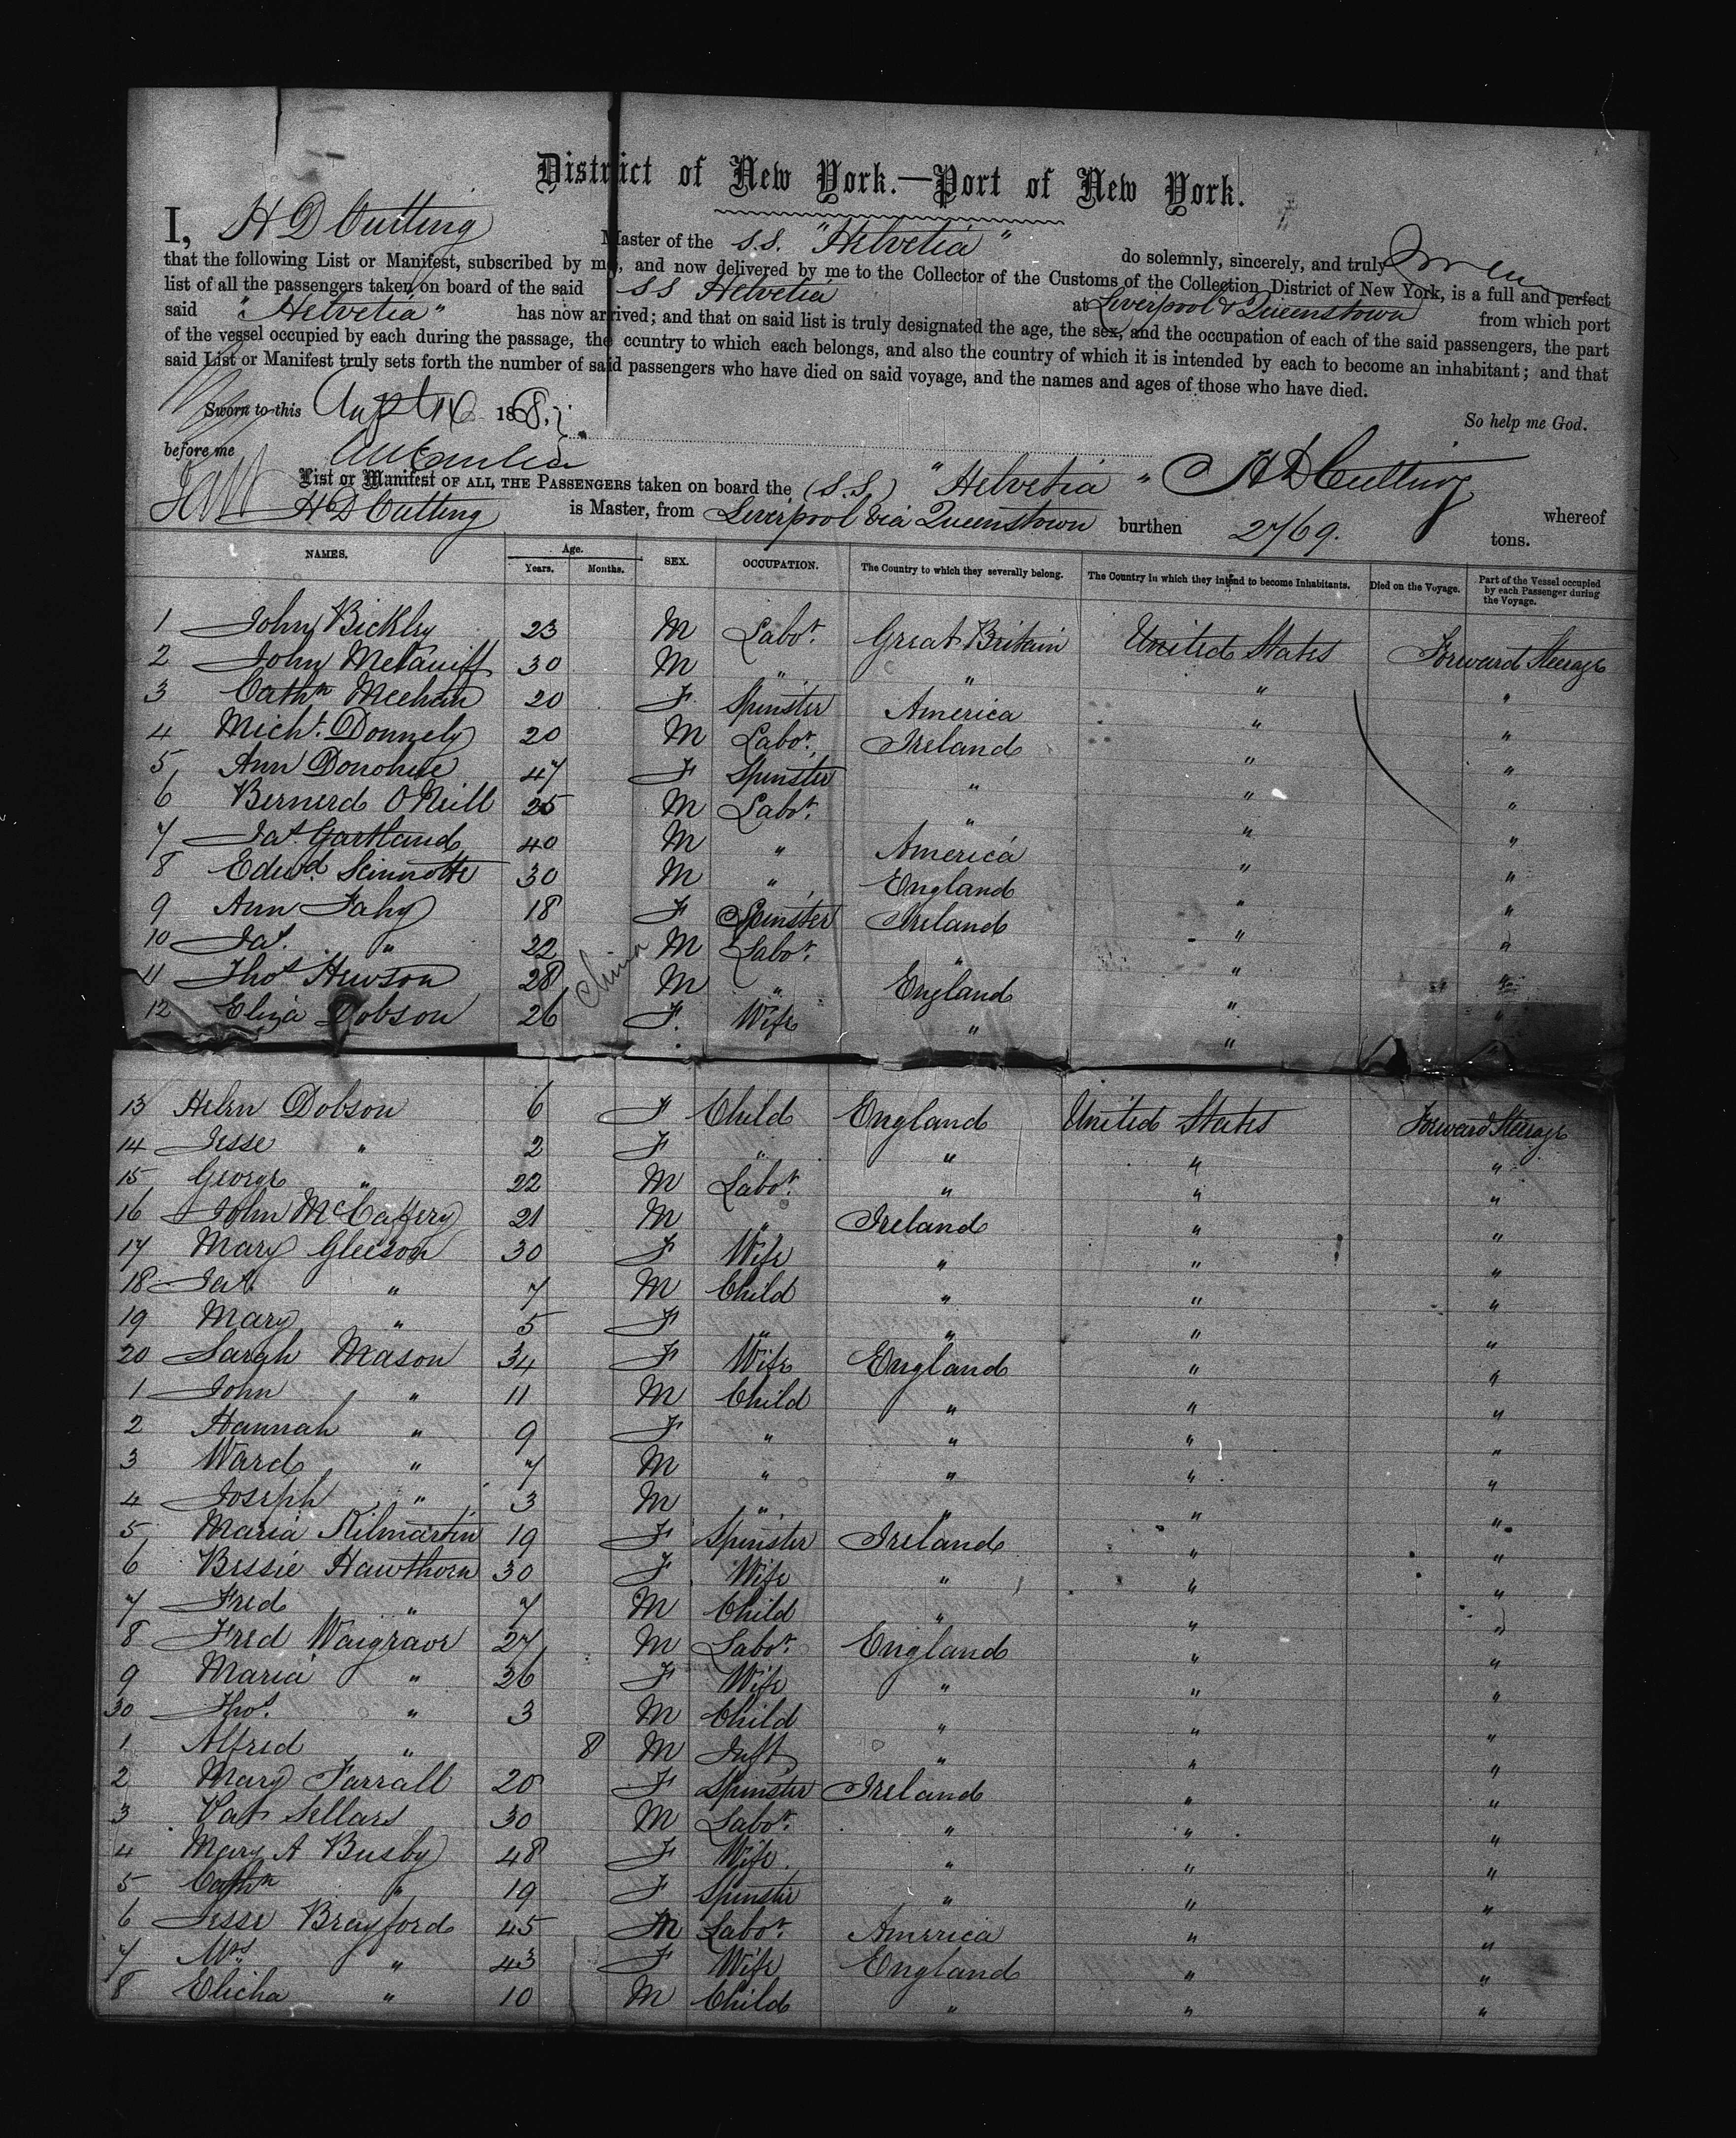 District of New York.—Port of New York.
I, H D Cutting Master of the S.S. "Helvetia" do solemnly, sincerely, and truly
that the following List or Manifest, subscribed by me, and now delivered by me to the Collector of the Customs of the Collection District of New York, is a full and perfect
list of all the passengers taken on board of the said SS Helvetia at Liverpool & Queenstown from which port
said "Helvetia" has now arrived; and that on said list is truly designated the age, the sex, and the occupation of each of the said passengers, the part
of the vessel occupied by each during the passage, the country to which each belongs, and also the country of which it is intended by each to become an inhabitant; and that
said List or Manifest truly sets forth the number of said passengers who have died on said voyage, and the names and ages of those who have died.
Sworn to this 1868, So help me God.
before me
List or Manifest OF ALL THE PASSENGERS taken on board the (S.S.) "Helvetia" H D Cutting whereof
H D Cutting is Master, from Liverpool via Queenstown burthen 2769. tons.
NAMES. Age. Years. Months. SEX. OCCUPATION. The Country to which they severally belong. The Country in which they intend to become Inhabitants. Died on the Voyage. Part of the Vessel occupied by each Passenger during the Voyage.
1 John Bickley 23 M Labor. Great Britain United States Forward Steerage
2 John 30 M " " " "
3 Cathn Meehan 20 F Spinster America " "
4 Michl. Donnely 20 M Labor. Ireland " "
5 Ann Donohue 47 F Spinster " " "
6 Bernerd O'Neill 25 M Labor. " " "
7 Jas. Gartland 40 M " America " "
8 Edwd. Scinnotte 30 M " England " "
9 Ann Fahy 18 F Spinster Ireland " "
10 Jas. " 22 M Labor. " " "
11 Thos Hewson 28 M " England " "
China
12 Eliza Dobson 26 F. Wife " " "
13 Helen Dobson 6 F Child England United States Forward Steerage
14 Jesse " 2 F " " " "
15 George " 22 M Labor. " " "
16 John McCaffery 21 M " Ireland " "
17 Mary Gleeson 30 F Wife " " "
18 Jas. " 7 M Child " " "
19 Mary " 5 F " " " "
20 Sargh Mason 34 F Wife England " "
1 John " 11 M Child " " "
2 Hannah " 9 F " " " "
3 Ward " 7 M " " " "
4 Joseph " 3 M " " " "
5 Maria Kilmartin 19 F Spinster Ireland " "
6 Bessie Hawthorn 30 F Wife " " "
7 Fred " 7 M Child " " "
8 Fred Waigrave 27 M Labor. England " "
9 Maria " 26 F Wife " " "
30 Thos. " 3 M Child " " "
1 Alfred " 8 M Inft " " "
2 Mary Farrall 20 F Spinster Ireland " "
3 Pat Sellars 30 M Labor. " " "
4 Mary A Busby 48 F Wife " " "
5 Cathn " 19 F Spinster " " "
6 Jesse Brayford 45 M Labor. America " "
7 Mrs " 43 F Wife England " "
8 Elicha " 10 M Child " " "